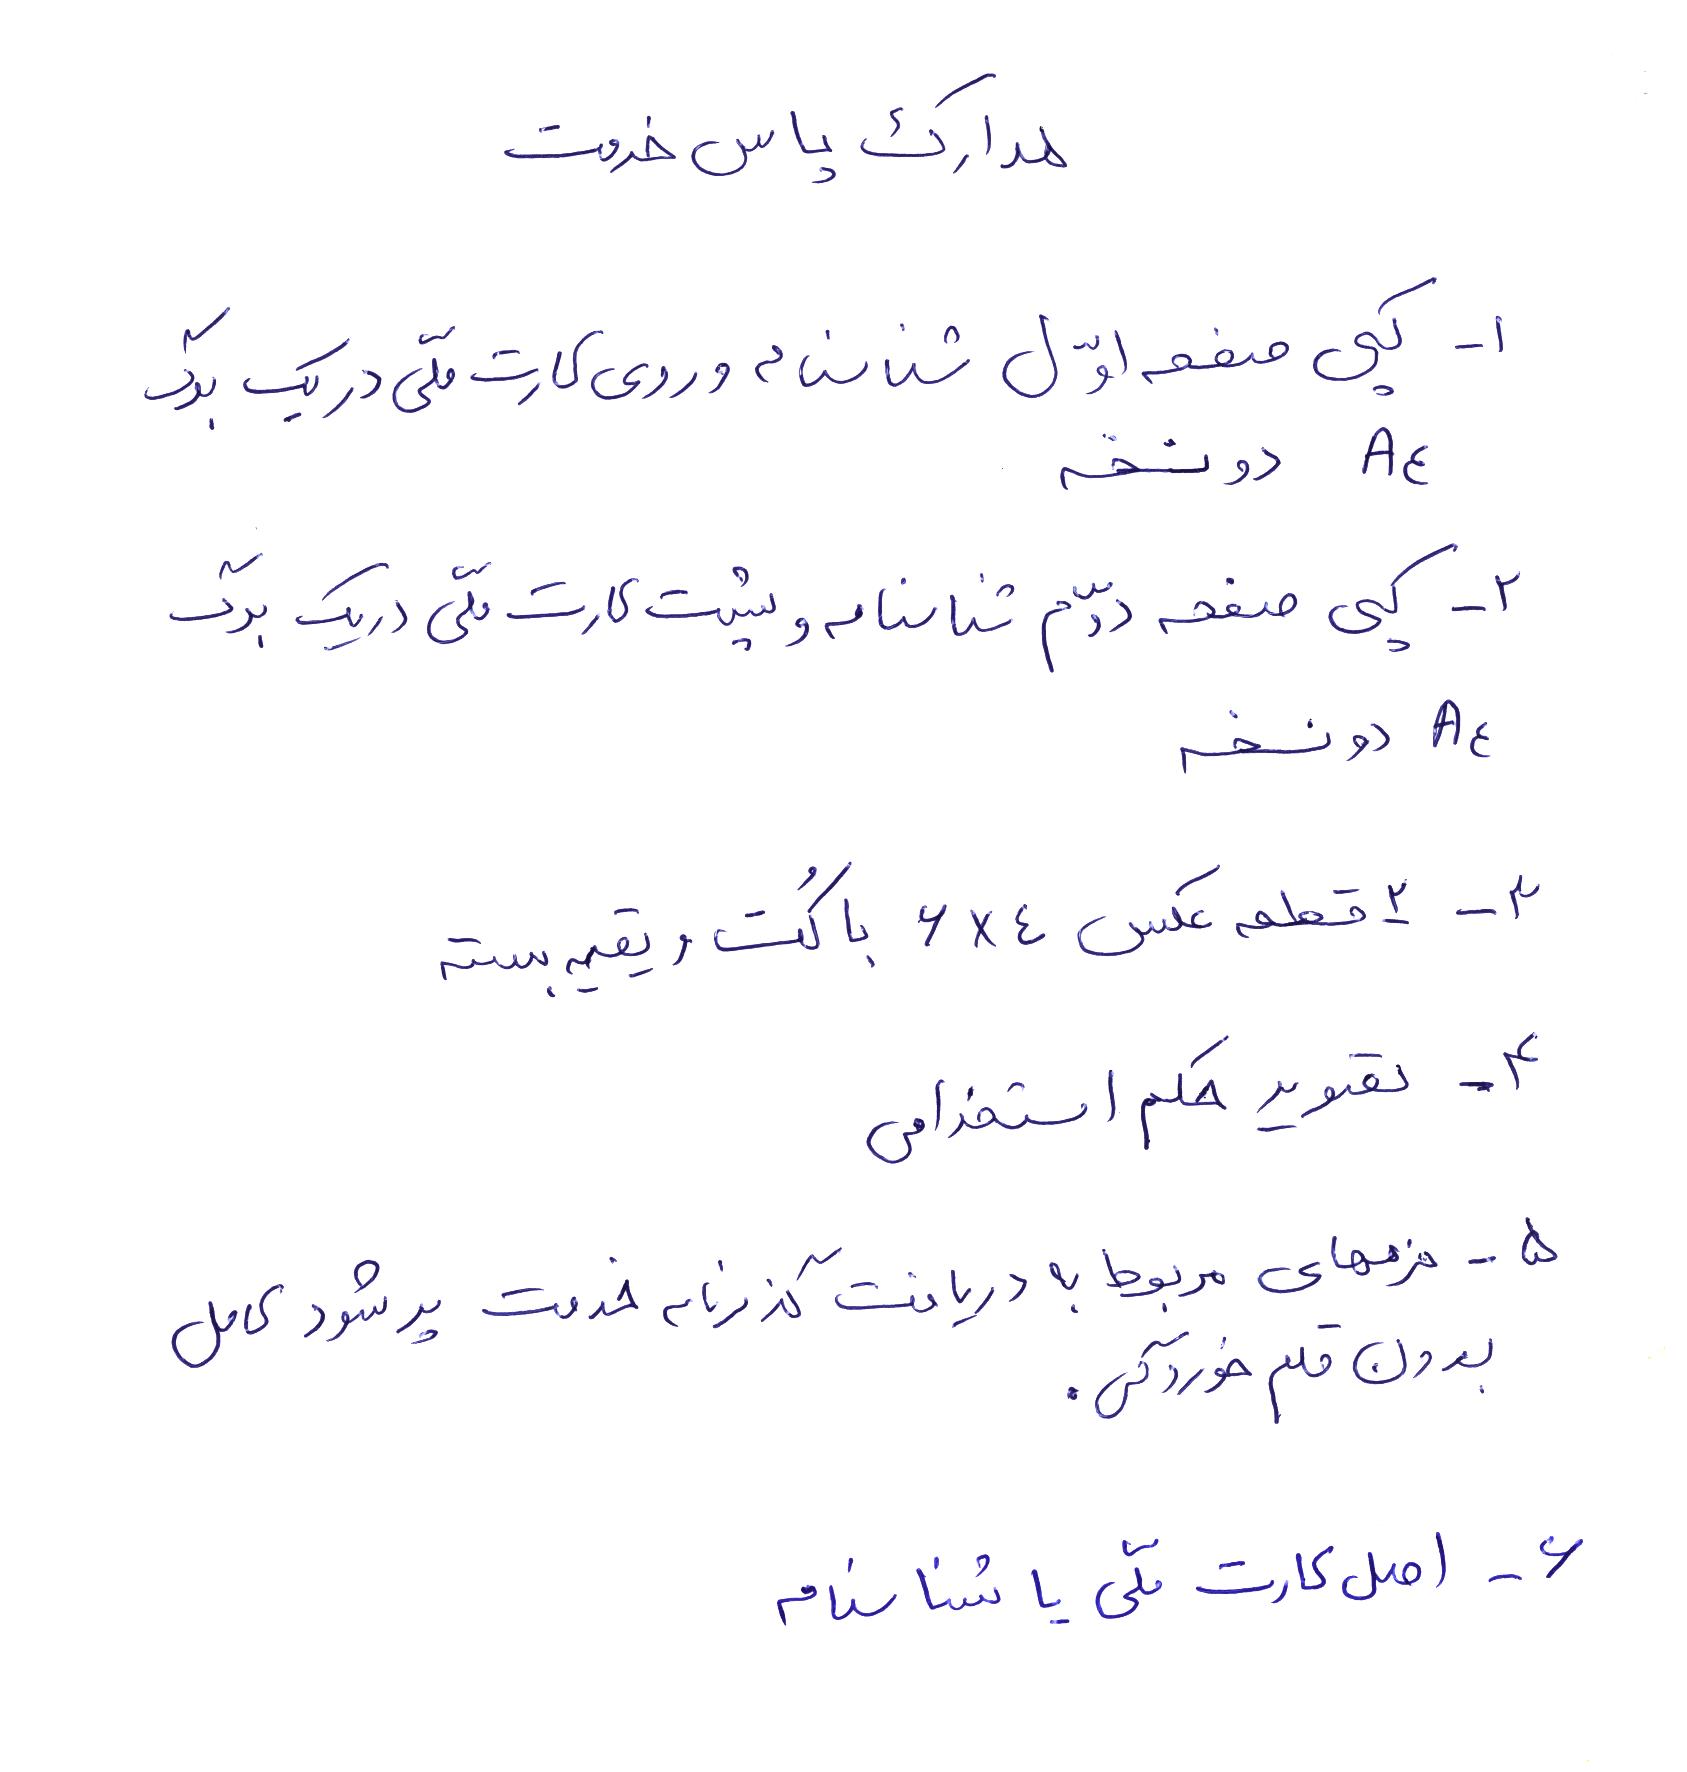 مدارک پاس خدمت
۱- کپی صفحه اوّل شناسنامه و روی کارت ملّی در یک برگ
A٤ دو نسخه
۲- کپی صفحه دوّم شناسنامه و پشت کارت ملّی در یک برگ
A٤ دو نسخه
۳- ۲ قطعه عکس ٤×۶ با کُت و یقیه بسته
۴- تصویر حکم استخدامی
۵- فرمهای مربوط به دریافت گذرنامه خدمت پر شود کامل
بدون قلم خوردگی.
۶- اصل کارت ملّی یا شناسنامه